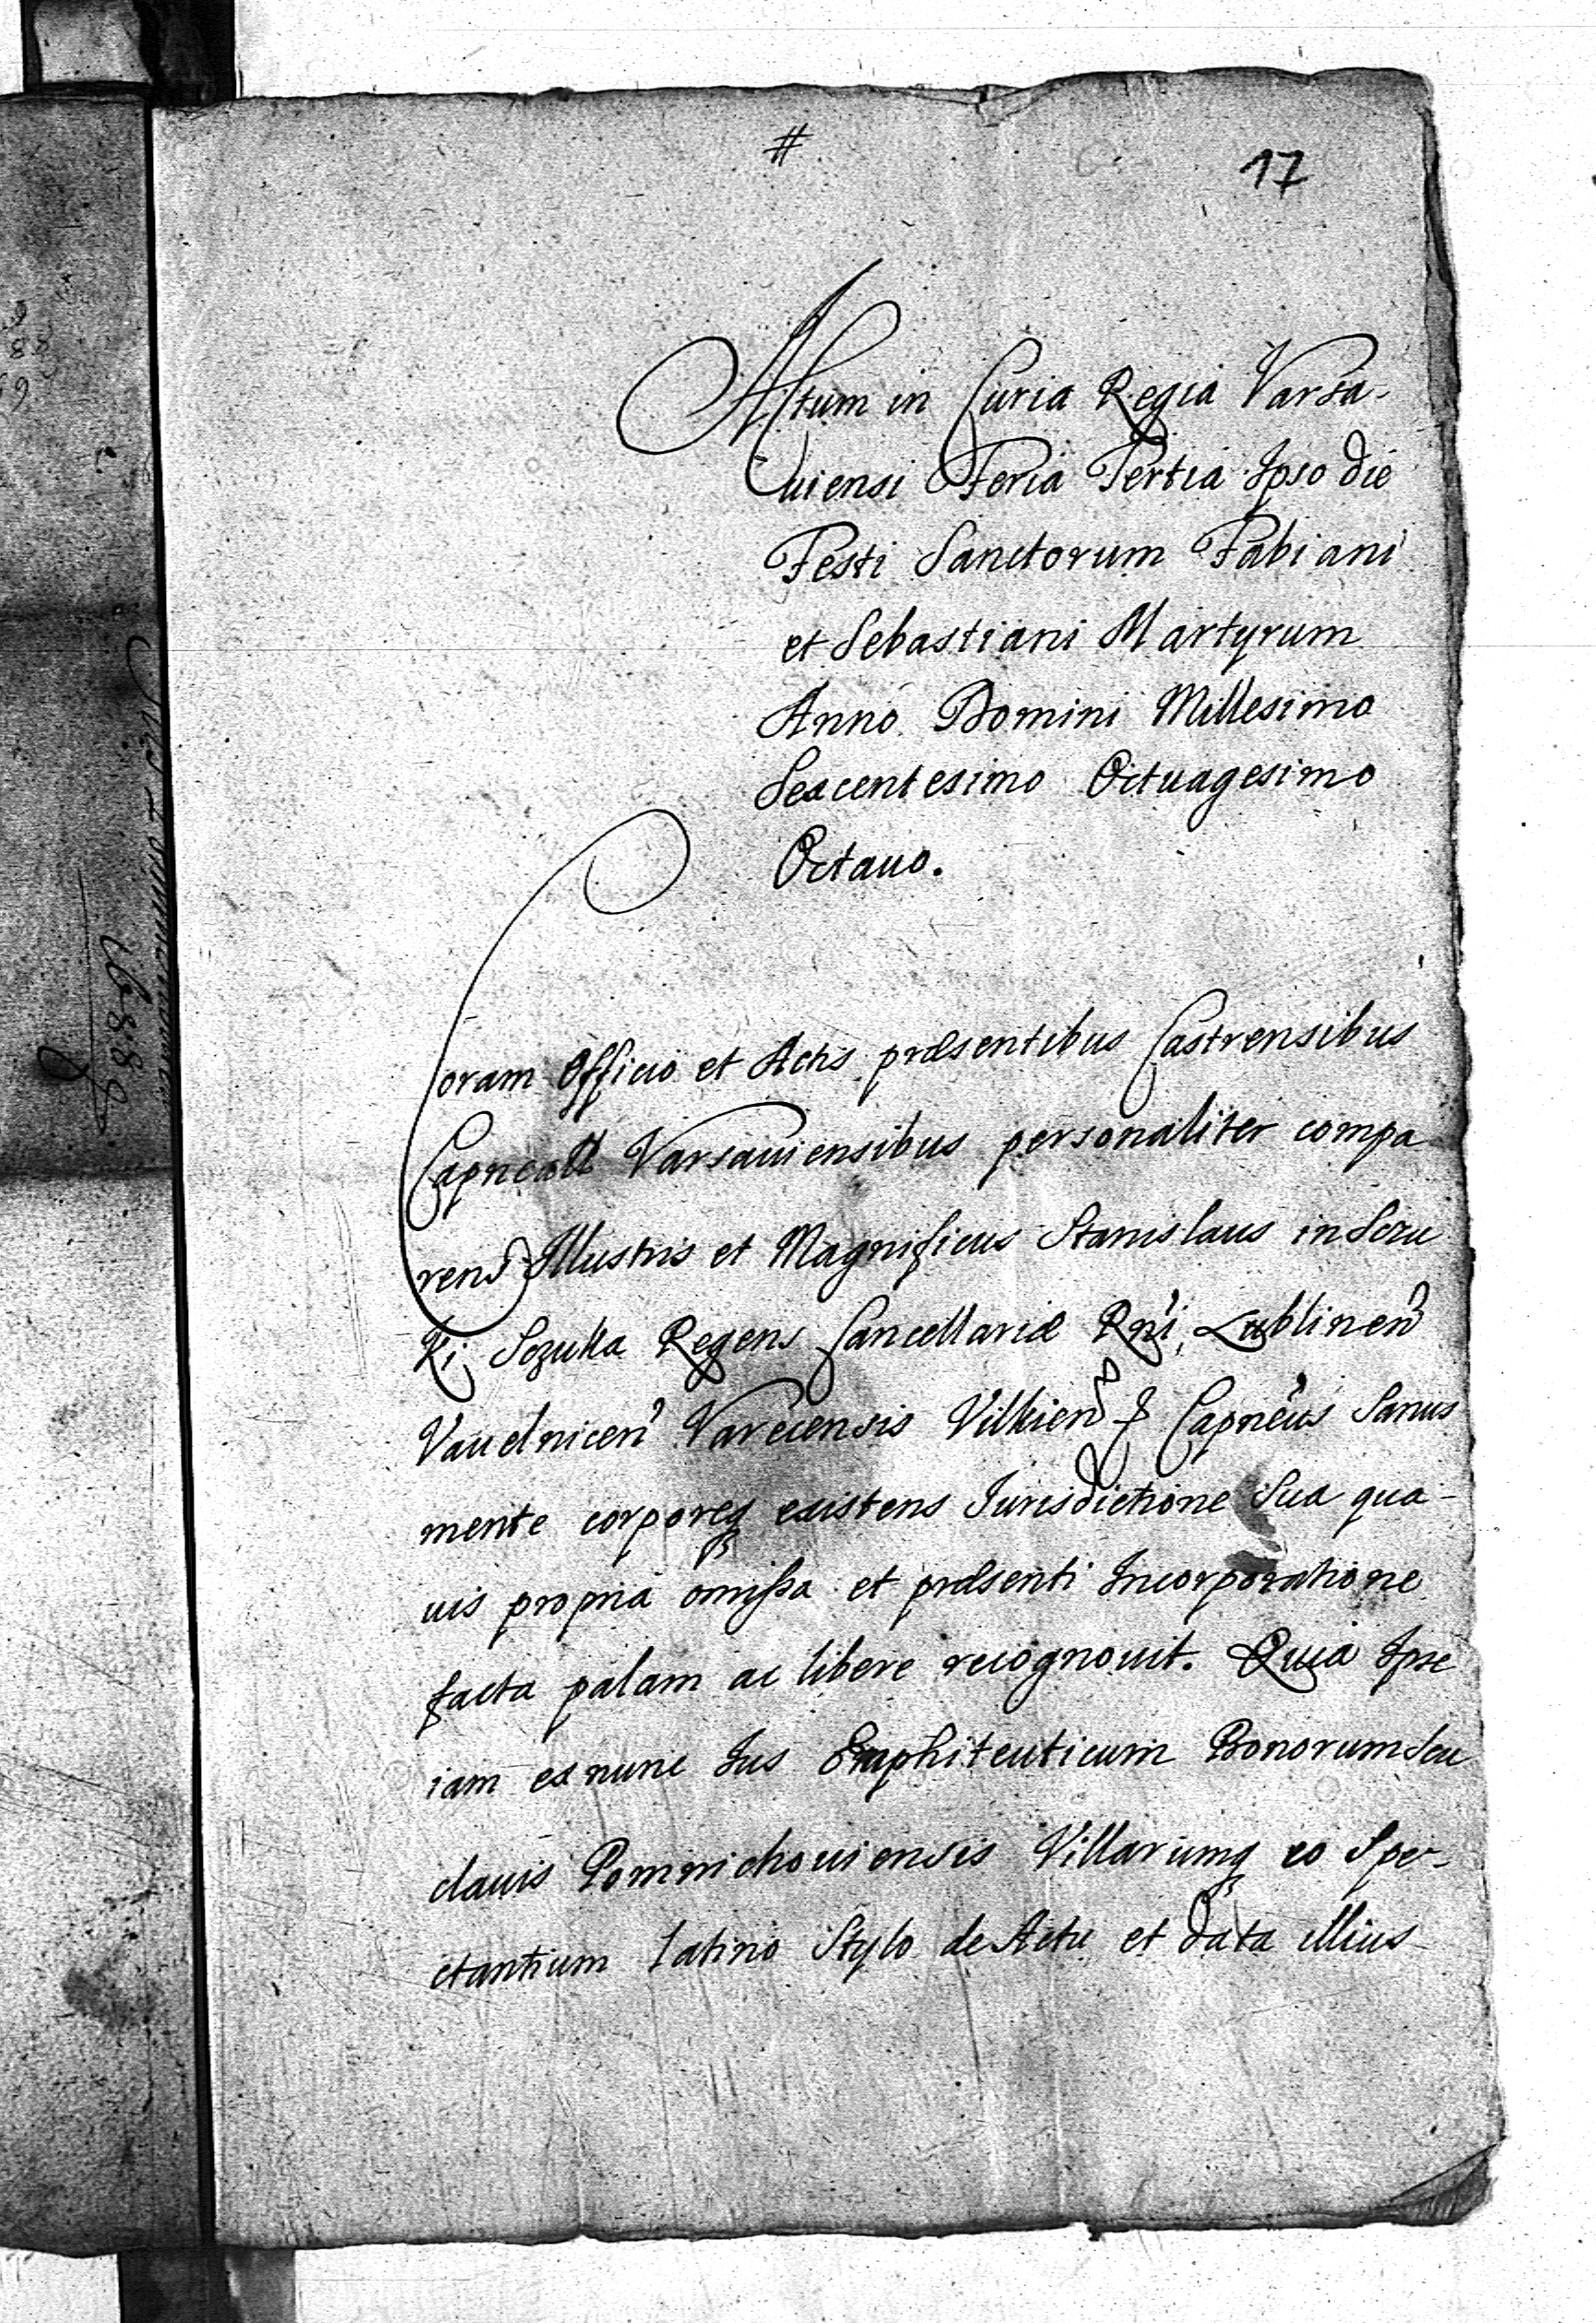 #
17
Actum in Curia Regia Varsa-
uiensi Feria Tertia Ipso die
Festi Sanctorum Fabiani
et Sebastiani Martyrum
Anno Domini Millesimo
Sexcentesimo Octuagesimo
Octauo.
Coram Officio et Actis præsentibus Castrensibus
Capnealibus Varsauiensibus personaliter compa
rens Illustris et Magnificus Stanislaus in Sczu
ki Sczuka Regens Cancellariæ Rni, Lublinen
Vauelnicen Varecensis Vilkien & Capneus Sanus
mente corporeq existens Iurisdictione Sua qua-
uis propria omissa et præsenti Incorporatione
facta palam ac libere recognouit. Quia Ipse
iam ex nunc Ius Emphiteuticum Bonorum Seu
clauis Pomnichouiensis Villarumq eo Spe-
ctantium latino Stylo de Actu et data illius